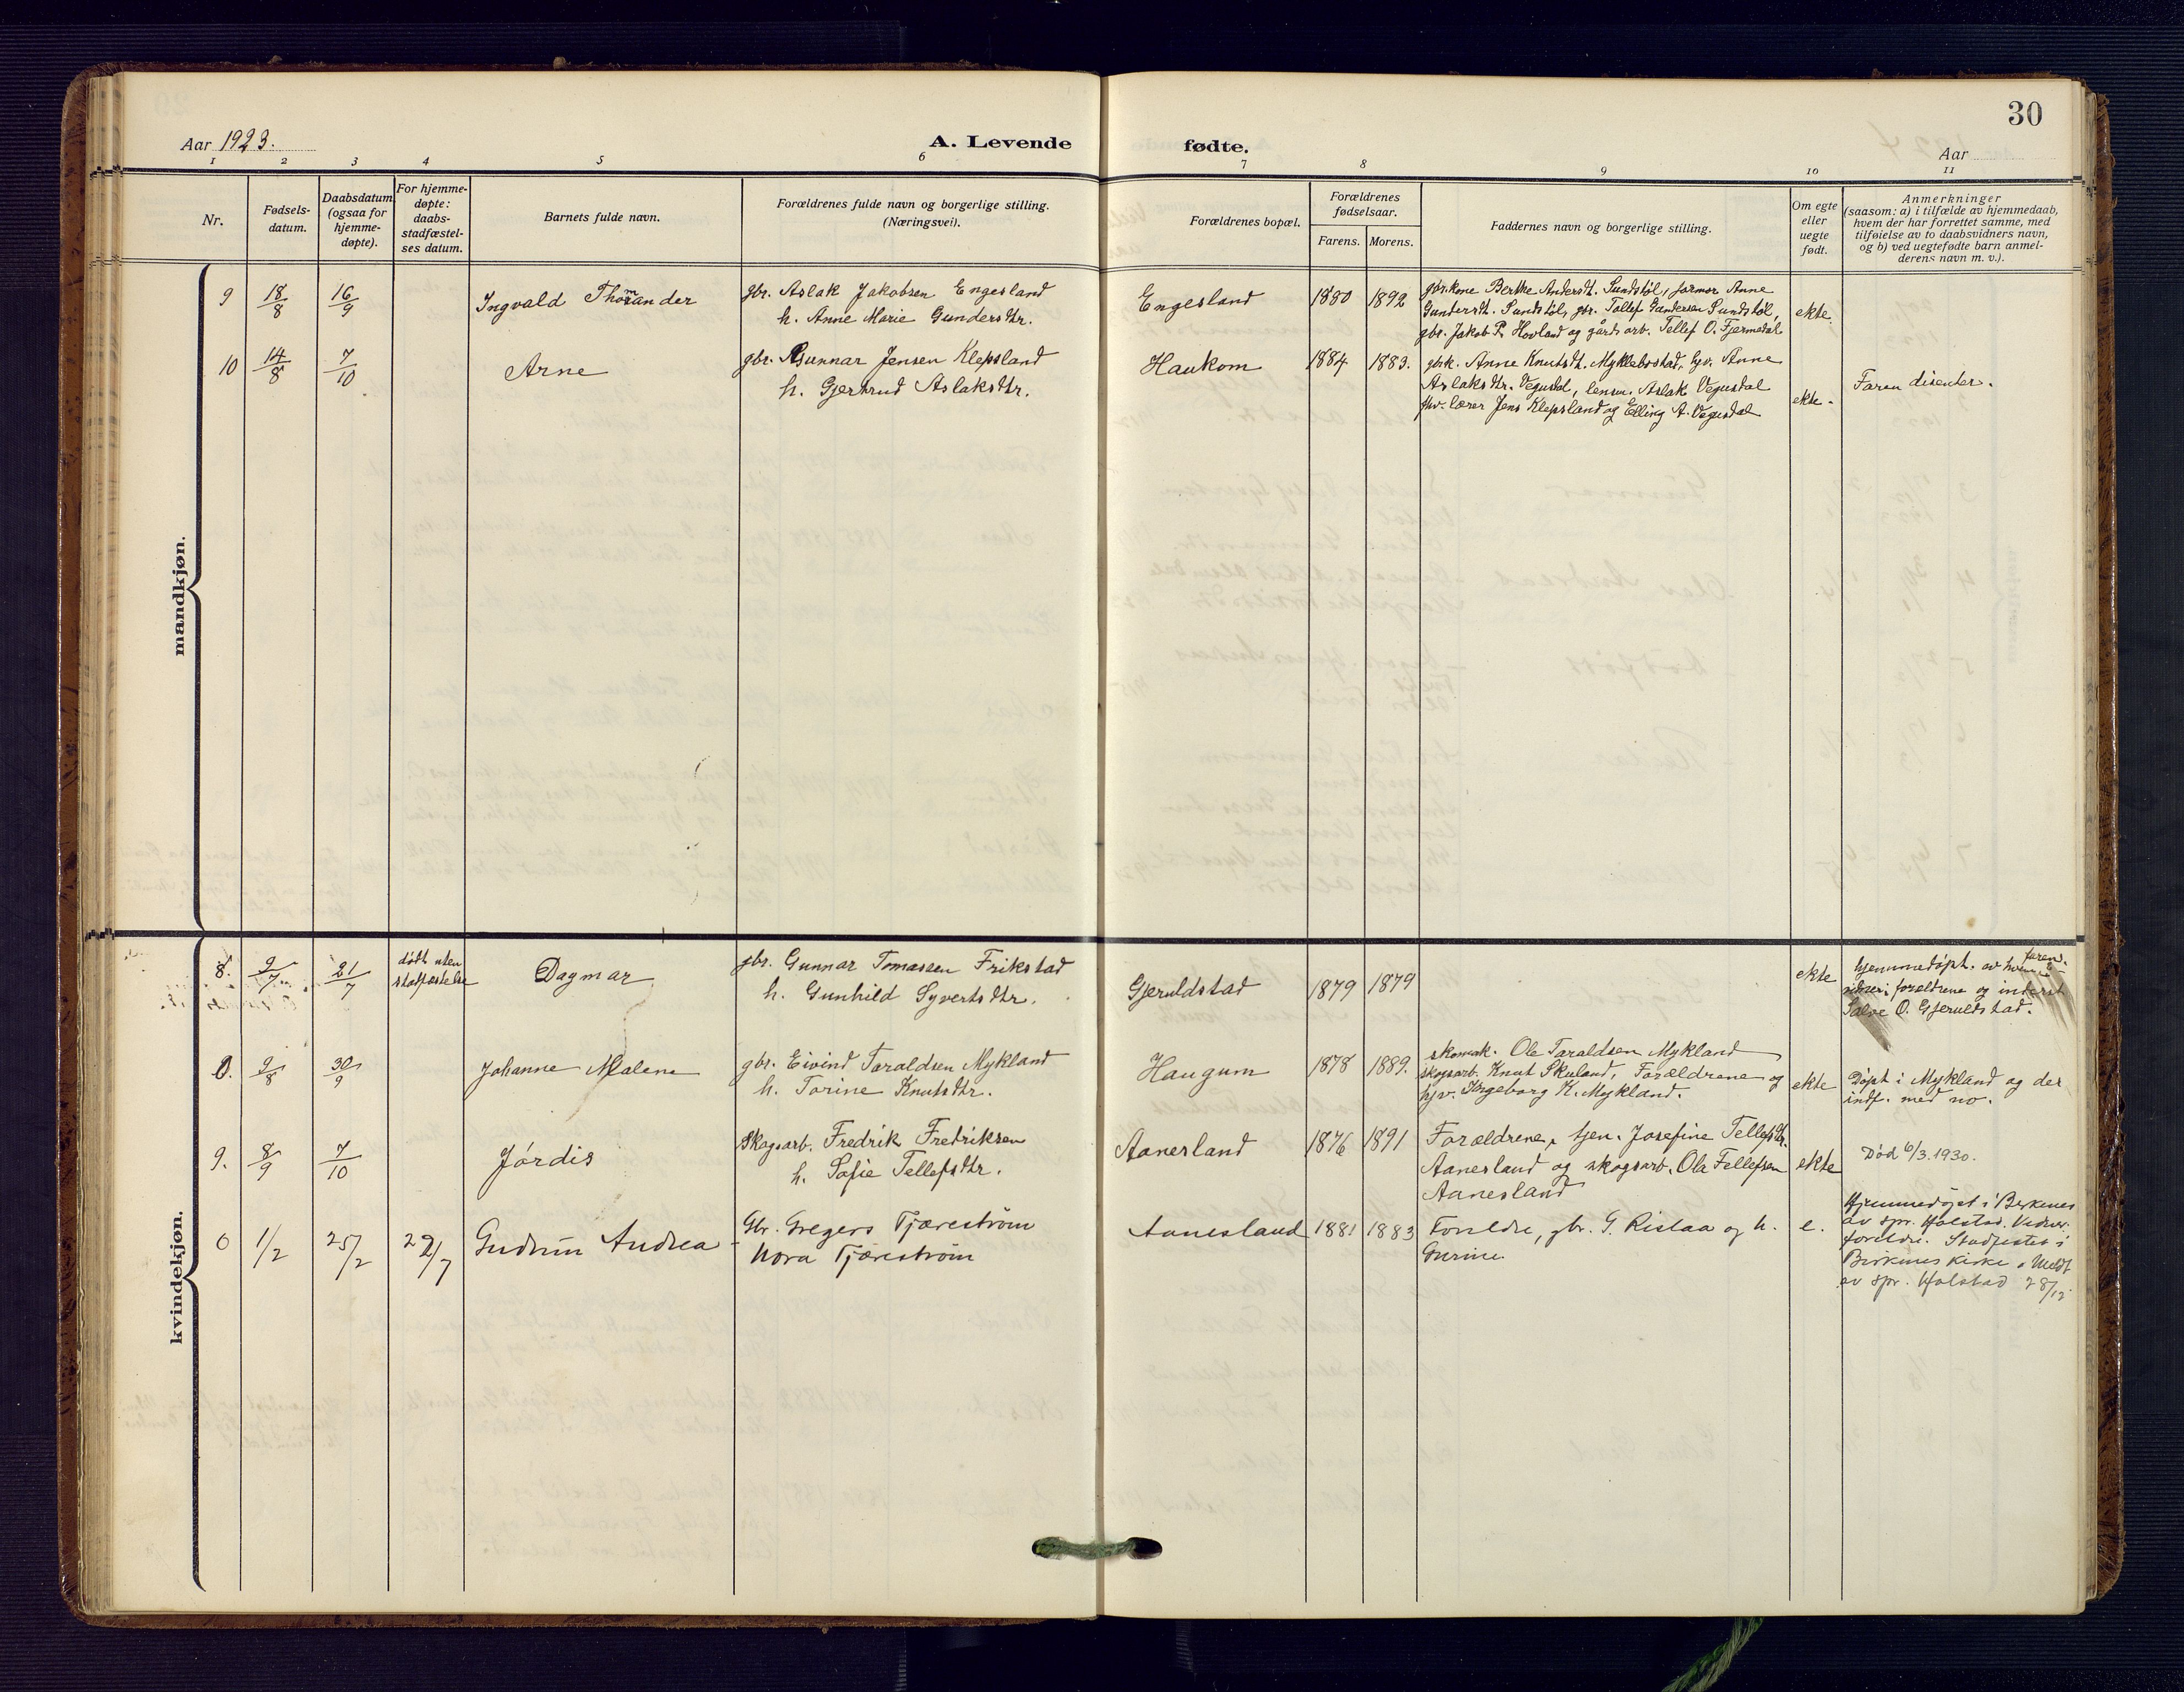 30
Aar 1923.
A. Levende fødte.
Aar
1 2 3 4 5 6 7 8 9 10 11
Nr.
Fødsels-
datum.
Daabsdatum
(ogsaa for
hjemme-
døpte).
For hjemme-
døpte:
daabs-
stadfæstel-
ses datum.
Barnets fulde navn.
Forældrenes fulde navn og borgerlige stilling.
(Næringsvei).
Forældrenes bopæl.
Forældrenes
fødselsaar.
Farens. Morens.
Faddernes navn og borgerlige stilling.
Om egte
eller
uegte
født.
Anmerkninger
(saasom: a) i tilfælde av hjemmedaab,
hvem der har forrettet samme, med
tilføielse av to daabsvidners navn,
og b) ved uegtefødte barn anmel-
derens navn m. v.).
mandkjøn.
9 18/8 16/9 Ingvald Thomander
gbr. Aslak Jakobsen Engesland
h. Anne Marie Gundersdtr.
Engesland 1880 1892
gbrkone Berthe Andersdt. Sundstøl, farmor Anne
Gundersdt. Sundstøl, gbr. Tollef Gundersen Sundstøl,
gbr. Jakob P. Hovland og gårds arb. Tellef O. Fjermedal
ekte.
10 14/8 7/10 Arne
gbr. Gunnar Jensen Klepsland
h. Gjertrud Aslaksdtr.
Haukom 1884 1883.
gbrk. Anne Knutsdt. Myklebostad, hjv. Anne
Aslaksdtr. Vegusdal, lensm. Aslak Vegusdal
fhv. lærer Jens Klepsland og Elling A. Vegusdal
ekte.
Faren disenter.
kvindekjøn.
8. 9/7 21/7
dødt uten
stadfæstelse
Dagmar
gbr. Gunnar Tomassen Frikstad
h. Gunhild Syvertsdtr.
Gjeruldstad 1879 1879
ekte
hjemmedøpt. av faren.
forældrene og inderst
Salve O. Gjeruldstad.
0. 9/8 30/9 Johanne Malene
gbr. Eivind Taraldsen Mykland
h. Torine Knutsdtr.
Haugum 1878 1889.
skomak. Ole Taraldsen Mykland
skogsarb. Knut Skuland, Forældrene og
hjv. Ingeborg K. Mykland.
ekte
Døpt i Mykland og der
indf. med no.
9. 8/9 7/10 Jórdis
Skogsarb. Fredrik Fredriksen
h. Sofie Tellefsdtr.
Aanesland 1876 1891
Forældrene, tjen. Josefine Tellefsdtr.
Aanesland og skogsarb. Ole Tellefsen
Aanesland
ekte
Død 6/3.1930.
0 1/2 25/2 22/7 Gudrun Andrea
Gbr. Gregers Tjæreström
Nora Tjæreström
Aanesland 1881 1883
Foreldre, gbr. G. Rislaa og h.
Gurine
e.
Hjemmedöpt i Birkenes
av spr. Holstad. Vidner
foreldre. Stadfestet i
Birkenes kirke. Meldt
av spr. Holstad 28/12